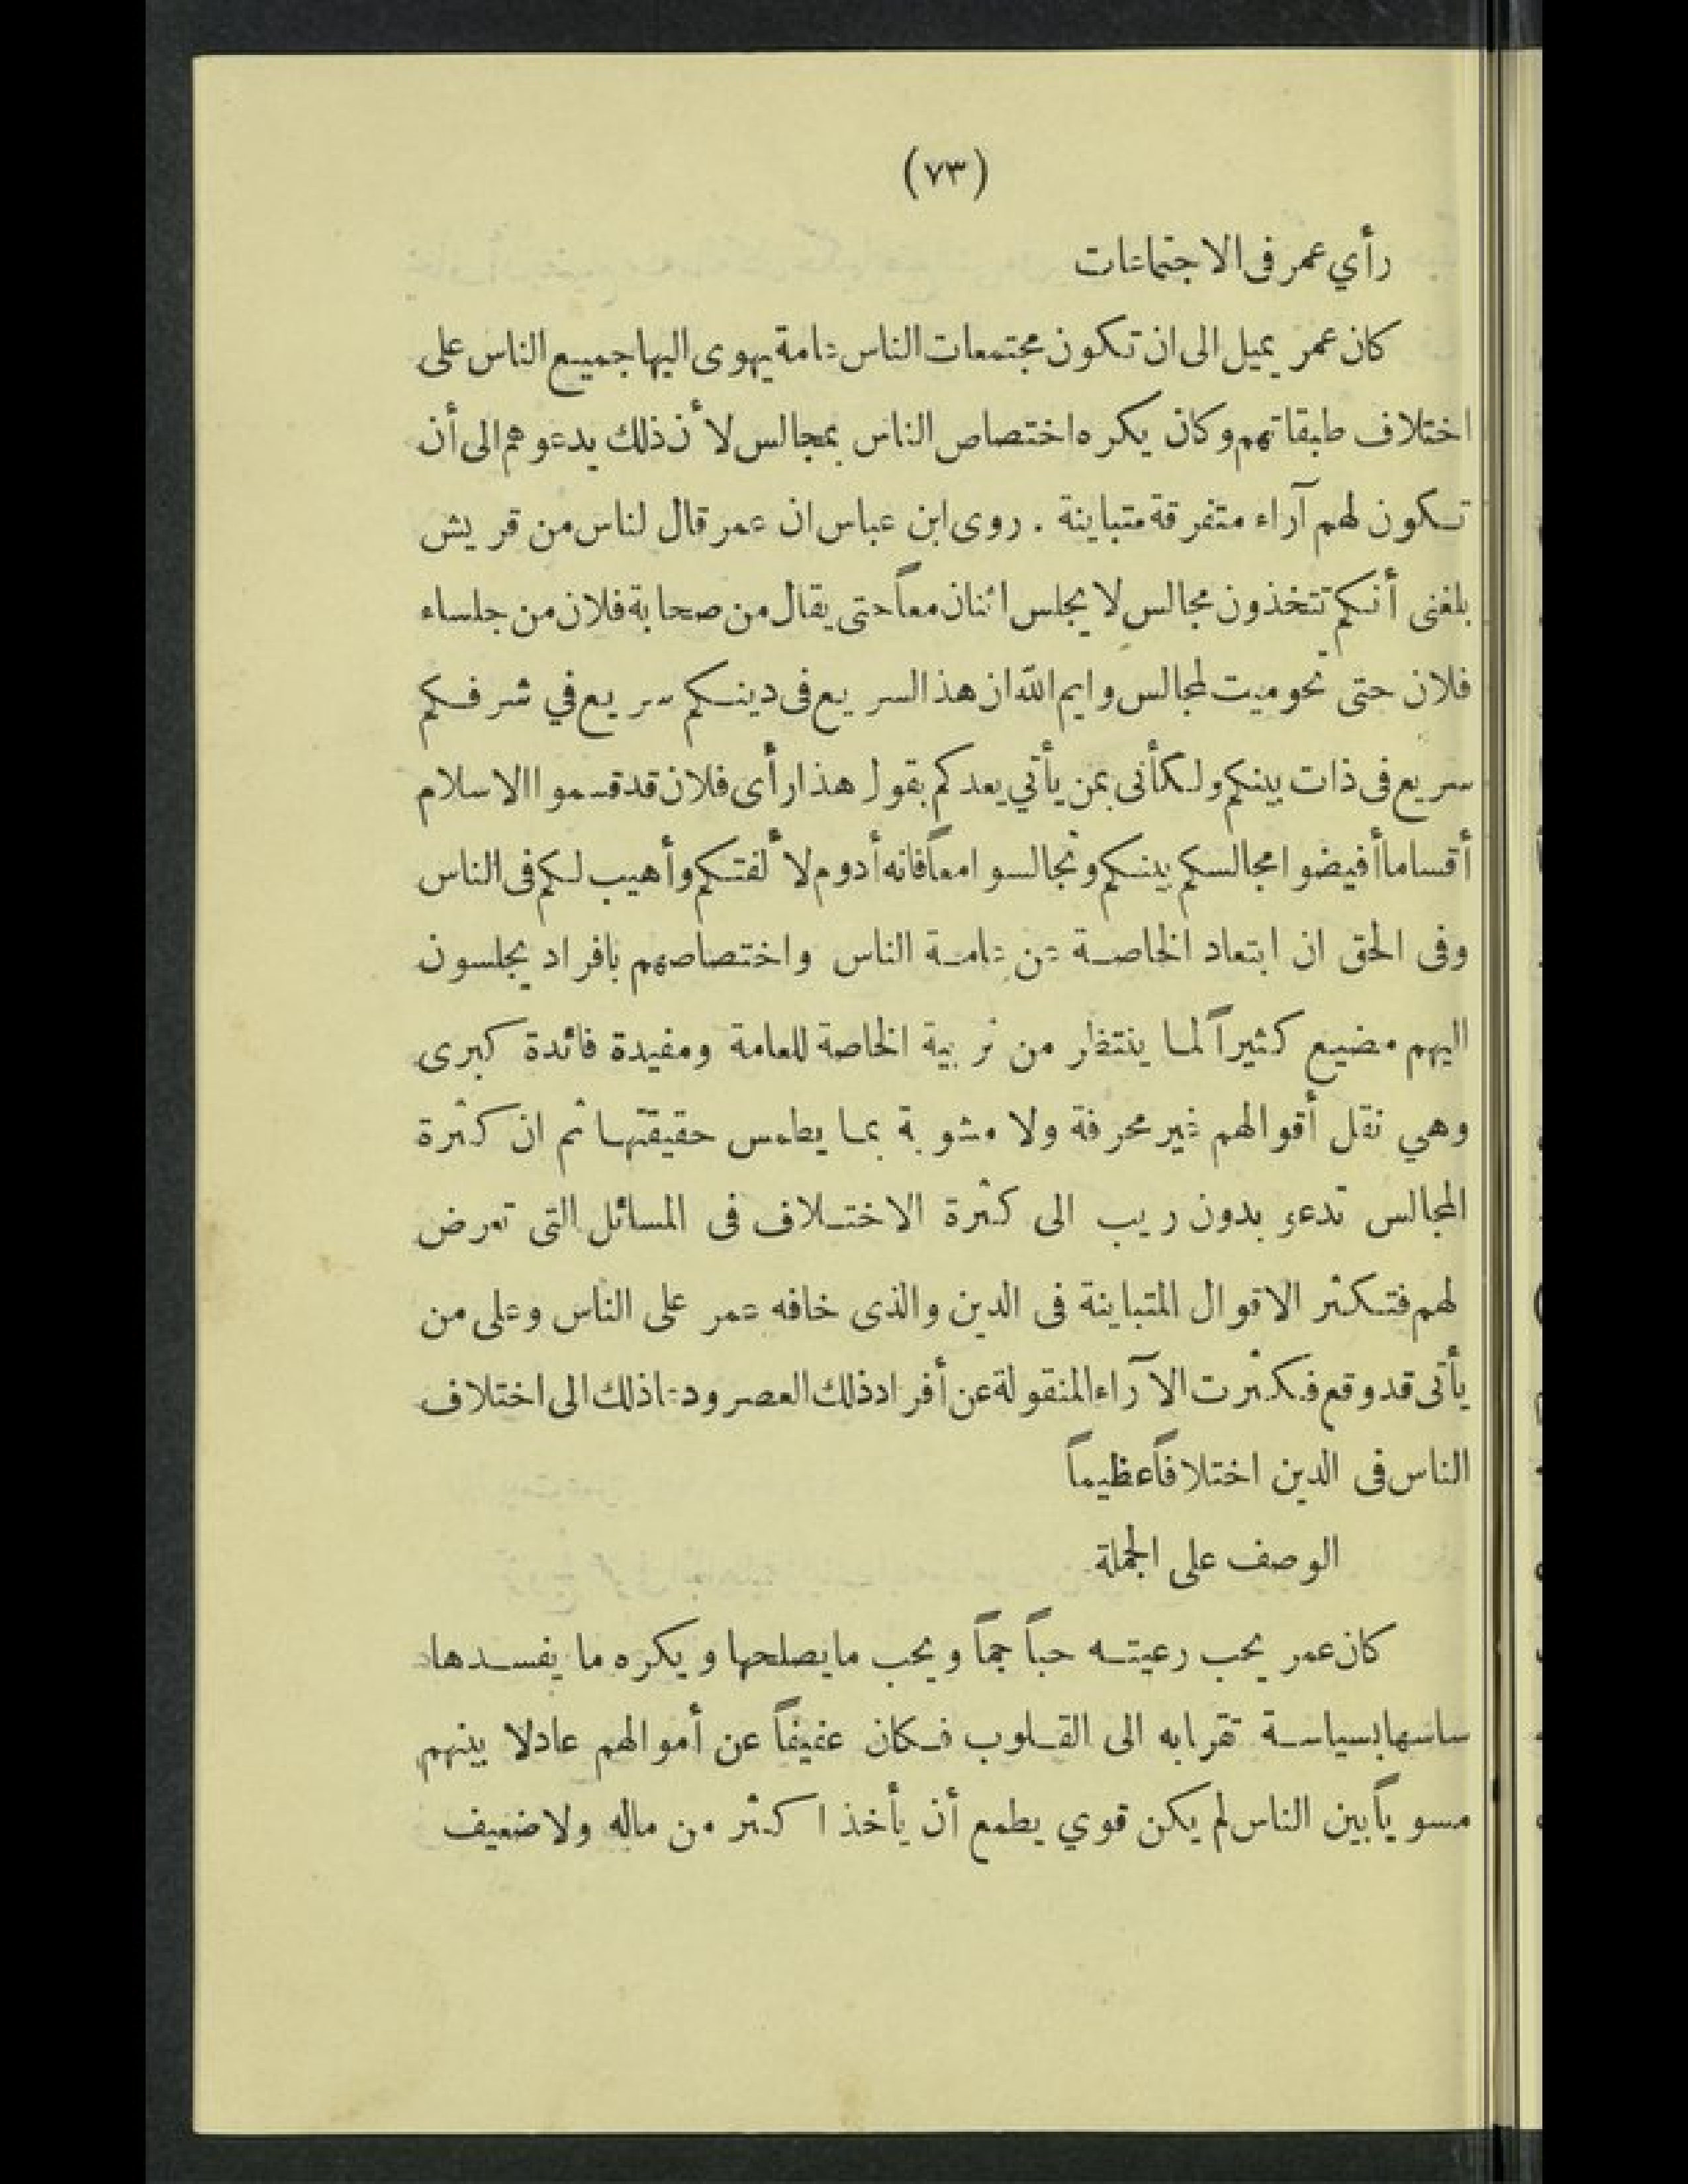 (٧٣)
رأي عمر فى الاجتماعات
كان عمر يميل الى ان تكون مجتمعات الناس عامة يهوى اليها جميع الناس على
اختلاف طبقاتهم وكان يكره اختصاص الناس بمجالس لأن ذلك يدعوهم الى أن
تكون لهم آراء متفرقة متباينة . روى ابن عباس ان عمر قال لناس من قريش
بلغنى أنكم تتخذون مجالس لا يجلس اثنان معاً حتى يقال من صحابة فلان من جلساء
فلان حتى تحوميت لمجالس وايم الله ان هذا السريع فى دينكم سريع في شرفكم
سريع فى ذات بينكم ولكأنى بمن يأتي بعدكم يقول هذا رأى فلان قد قسموا الاسلام
أقساما أفيضوا مجالسكم بينكم وتجالسوا معاً فانه أدوم لألفتكم وأهيب لكم فى الناس
وفى الحق ان ابتعاد الخاصة عن عامة الناس واختصاصهم بافراد يجلسون
اليهم مضيع كثيراً لما ينتظر من تربية الخاصة للعامة ومفيدة فائدة كبرى
وهي نقل أقوالهم غير محرفة ولا مشوبة بما يطمس حقيقتها ثم ان كثرة
المجالس تدعو بدون ريب الى كثرة الاختلاف فى المسائل التى تعرض
لهم فتكثر الاقوال المتباينة فى الدين والذى خافه عمر على الناس وعلى من
يأتى قد وقع فكثرت الآراء المنقولة عن أفراد ذلك العصر ودعا ذلك الى اختلاف
الناس فى الدين اختلافاً عظيماً
الوصف على الجملة
كان عمر يحب رعيته حباً جماً ويحب ما يصلحها ويكره ما يفسدها
ساسها بسياسة تقرابه الى القلوب فكان عفيفاً عن أموالهم عادلا بينهم
مسوياً بين الناس لم يكن قوي يطمع أن يأخذ اكثر من ماله ولا ضعيف